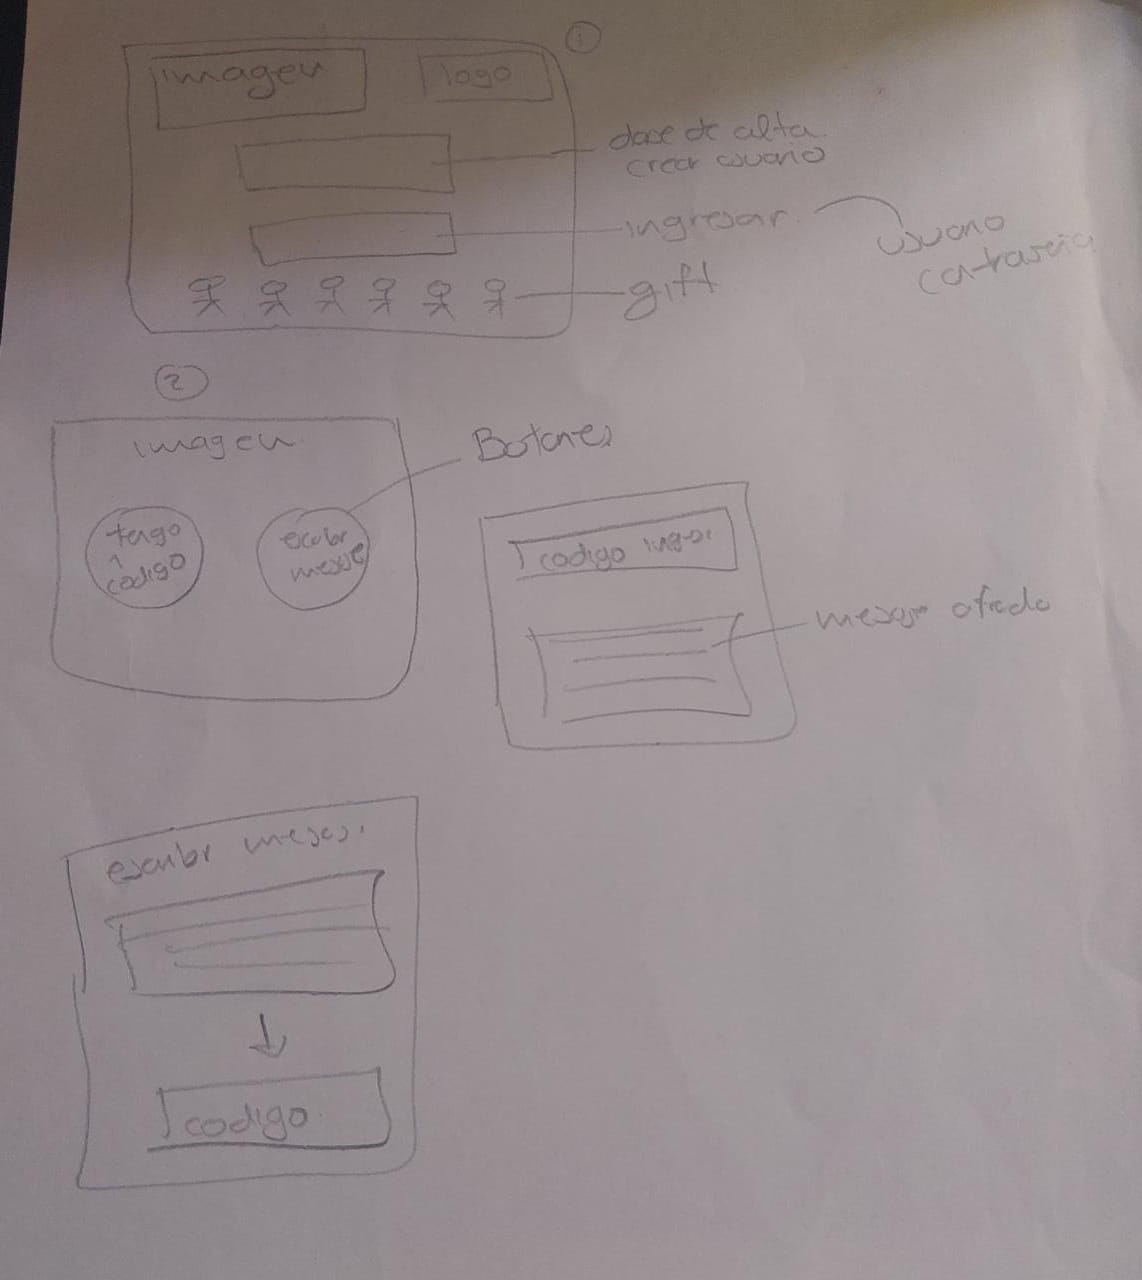 1
imagen
logo
darse de alta
crear usuario
ingresar
usuario
contraseña
gift
2
imagen
Botones
tengo
1
codigo
escribir
mensaje
codigo
mensaje
escribir
codigo